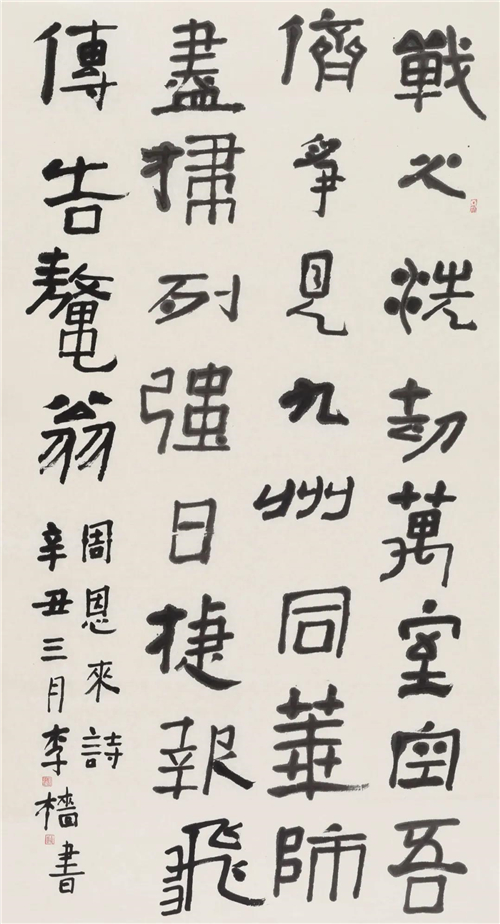 戰火洗劫萬室空吾
儕爭見九州同華師
盡掃列強日捷報飛
傳告鼇翁
周恩來詩
辛丑三月李檣書